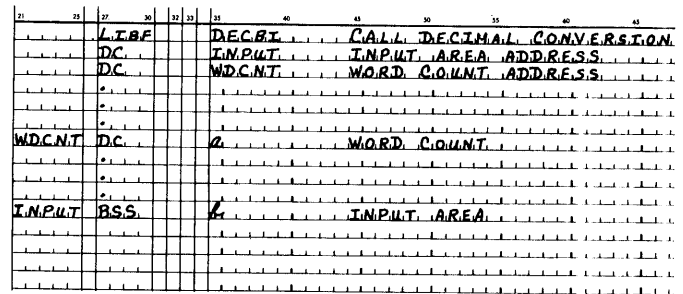 21 25 27 30 32 33 35 40 45 30 35 40 45
LIBF DECBI CALL DECIMAL CONVERSION
DC INPUT INPUT AREA ADDRESS
DC WDCNT WORD COUNT ADDRESS
.
.
.
WDCNT DC a WORD COUNT
.
.
.
INPUT BSS b INPUT AREA